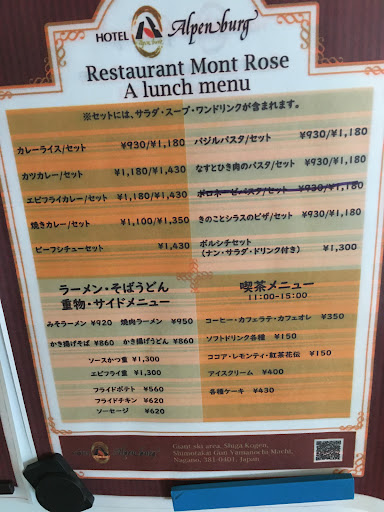 HOTEL Alpenburg
Restaurant Mont Rose
A lunch menu
※セットには、サラダ・スープ・ワンドリンクが含まれます。
カレーライス/セット ¥930/¥1,180
カツカレー/セット ¥1,180/¥1,430
エビフライカレー/セット ¥1,180/¥1,430
焼きカレー/セット ¥1,100/¥1,350
ビーフシチューセット ¥1,430
バジルパスタ/セット ¥930/¥1,180
なすとひき肉のパスタ/セット ¥930/¥1,180
ボロネーゼパスタ/セット ¥930/¥1,180
きのことシラスのピザ/セット ¥930/¥1,180
ボルシチセット
(ナン・サラダ・ドリンク付き) ¥1,300
ラーメン・そばうどん
重物・サイドメニュー
みそラーメン ¥920 焼肉ラーメン ¥950
かき揚げそば ¥860 かき揚げうどん ¥860
ソースかつ重 ¥1,300
エビフライ重 ¥1,300
フライドポテト ¥560
フライドチキン ¥620
ソーセージ ¥620
喫茶メニュー
11:00-15:00
コーヒー・カフェラテ・カフェオレ ¥350
ソフトドリンク各種 ¥150
ココア・レモンティ・紅茶花伝 ¥150
アイスクリーム ¥400
各種ケーキ ¥430
Giant ski area, Shiga Kogen,
Shimotakai Gun Yamanochi Machi,
Nagano, 381-0401, Japan